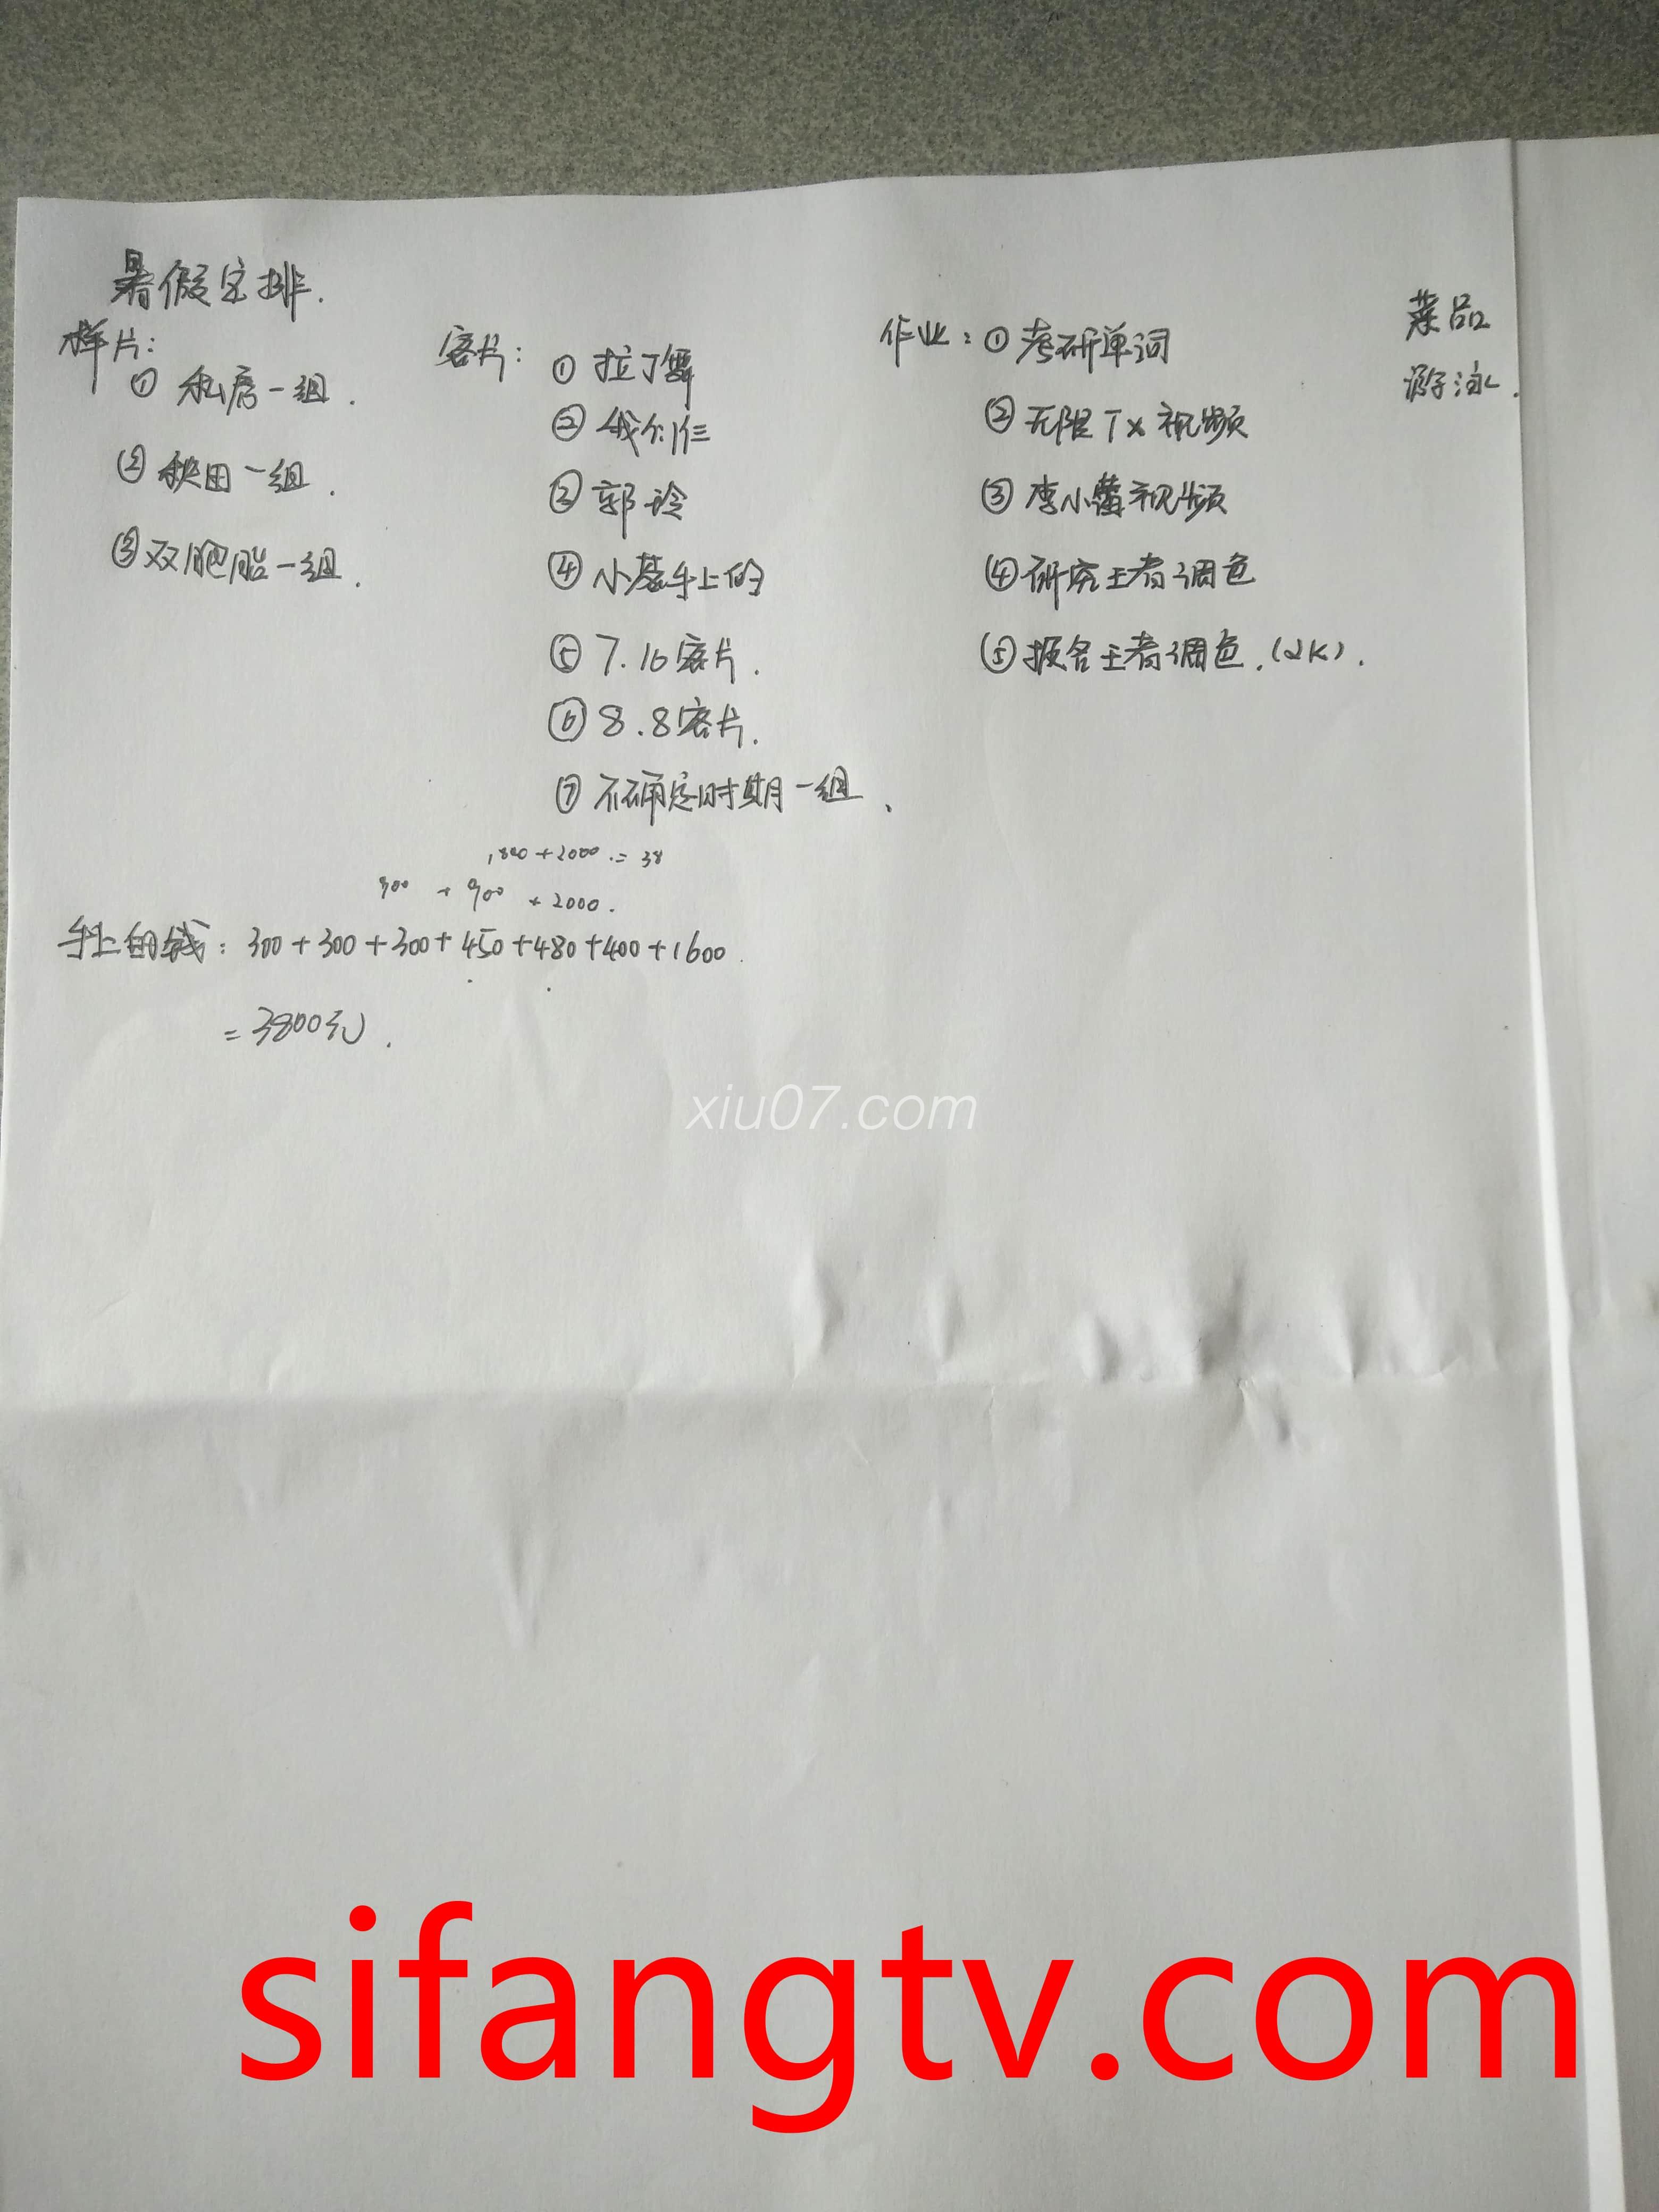 暑假安排.
样片:
① 私房一组.
② 秋田一组.
③ 双胞胎一组.
客片:
① 拉丁舞
② 我们仨
③ 郭玲
④ 小慕手上的
⑤ 7.16客片.
⑥ 8.8客片.
⑦ 不确定时期一组.
作业: ① 考研单词
② 无限Tx视频
③ 李小蕾视频
④ 研究王者调色
⑤ 报名王者调色.(2K).
菜品
游泳.
1800+2000.=38
900 + 900 + 2000.
手上的钱: 300+300+300+450+480+400+1600.
=3800元.
xiu07.com
sifangtv.com